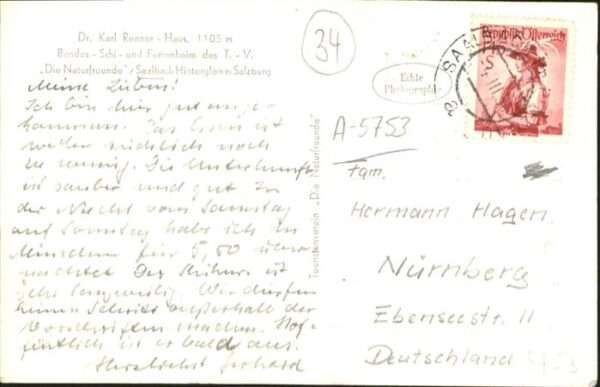 Dr. Karl Renner - Haus, 1105 m
Bundes - Schi - und Ferienheim des T. - V.
„Die Naturfreunde" / Saalbach-Hinterglemm Salzburg
Meine Lieben!
Ich bin hier gut ange-
kommen. Das ist
noch
zu wenig. Die Unterkunft
ist sauber und gut. In
der Nacht vom Samstag
auf Sonntag habe ich in
München für 5,50 über-
nachtet. Der ist
sehr langweilig. Wir dürfen
keinen Schritt außerhalb der
machen. Hof-
fentlich ist er bald aus.
Herzlichst Gerhard
Touristenverein „Die Naturfreunde"
34
Echte
Photographie
A-5753
Republik Österreich
SAALBACH
Fam.
Hermann Hagen
Nürnberg
Ebenseestr. 11
Deutschland